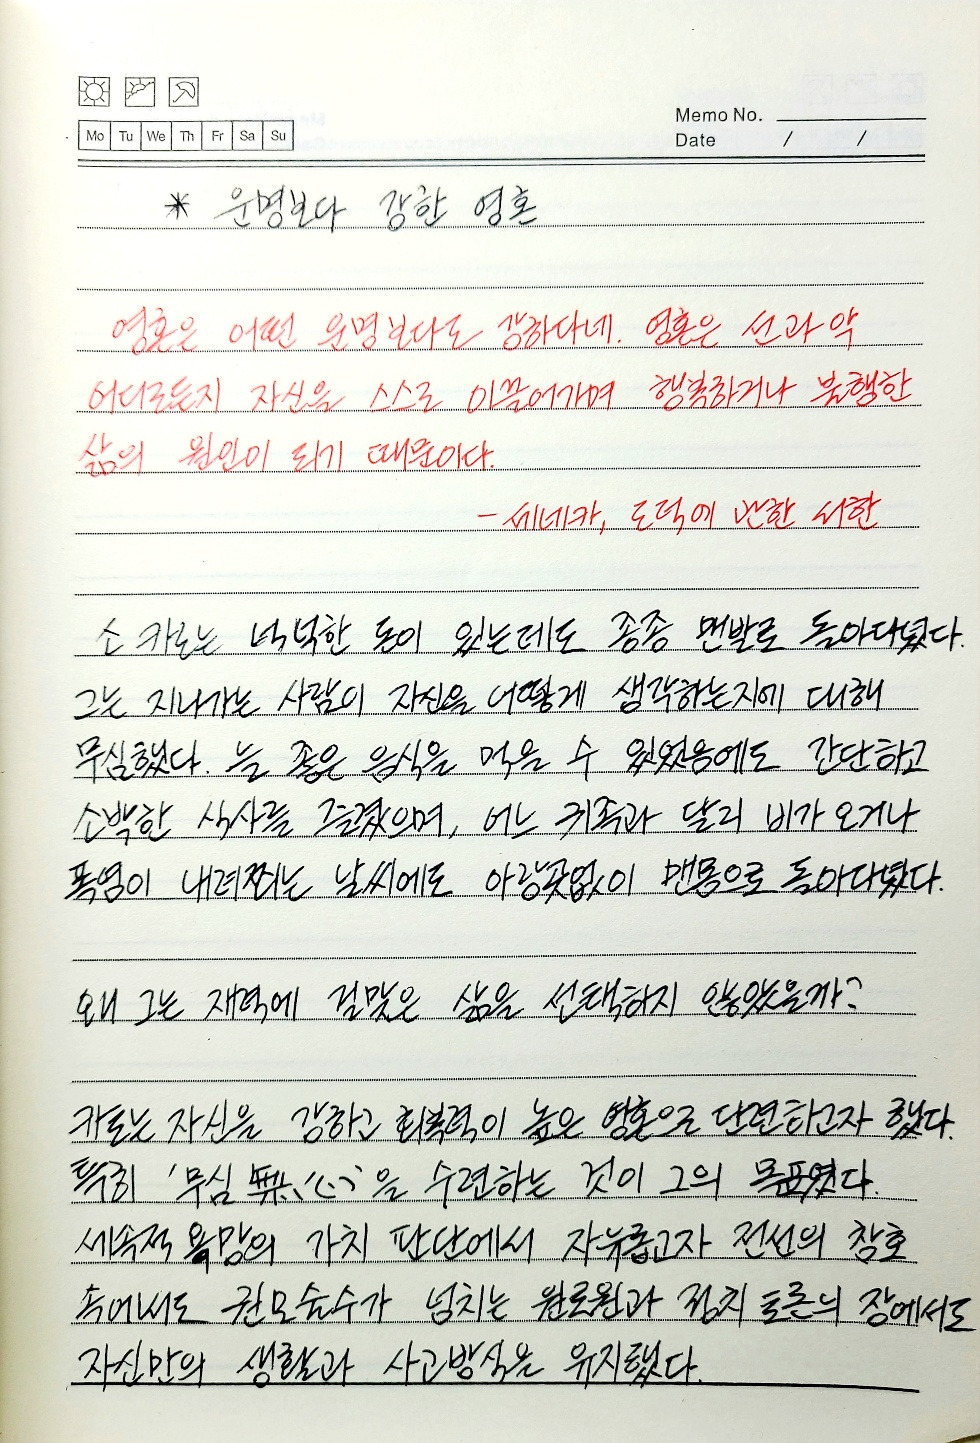 Mo Tu We Th Fr Sa Su
Memo No.
Date / /
* 운명보다 강한 영혼
영혼은 어떤 운명보다도 강하다네. 영혼은 선과 악
어디로든지 자신을 스스로 이끌어가며 행복하거나 불행한
삶의 원인이 되기 때문이다.
- 세네카, 도덕에 관한 서한
소 카토는 넉넉한 돈이 있는데도 종종 맨발로 돌아다녔다.
그는 지나가는 사람이 자신을 어떻게 생각하는지에 대해
무심했다. 늘 좋은 음식을 먹을 수 있었음에도 간단하고
소박한 식사를 즐겼으며, 어느 귀족과 달리 비가 오거나
폭염이 내려쬐는 날씨에도 아랑곳없이 맨몸으로 돌아다녔다.
왜 그는 재력에 걸맞은 삶을 선택하지 않았을까?
카토는 자신을 강하고 회복력이 높은 영혼으로 단련하고자 했다.
특히 '무심 無心'을 수련하는 것이 그의 목표였다.
세속적 욕망의 가치 판단에서 자유롭고자 전선의 참호
속에서도 권모술수가 넘치는 원로원과 정치 토론의 장에서도
자신만의 생활과 사고방식을 유지했다.